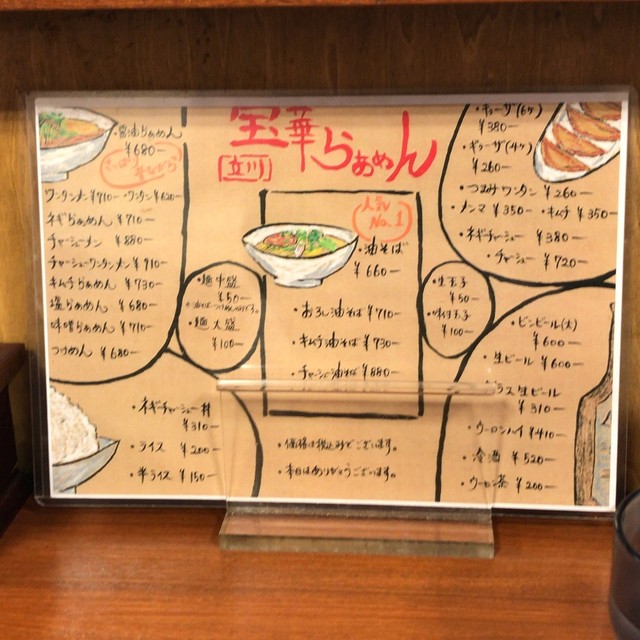 宝華らぁめん
[立川]
・醤油らぁめん
¥680-
ワンタンメン ¥710- ・ワンタン ¥620-
ネギらぁめん ¥710-
チャーシューメン ¥880-
チャーシューワンタンメン ¥910-
キムチらぁめん ¥730-
塩らぁめん ¥680-
味噌らぁめん ¥710-
つけめん ¥680-
・麺中盛
¥50-
・麺大盛
¥100-
人気
No.1
・油そば
¥660-
・おろし油そば ¥710-
・キムチ油そば ¥730-
・チャーシュー油そば ¥880-
・生玉子
¥50-
・味付玉子
¥100-
・ギョーザ(6ケ)
¥380-
・ギョーザ(4ケ)
¥260-
・つまみワンタン ¥260-
・メンマ ¥350- ・キムチ ¥350-
・ネギチャーシュー ¥380-
・チャーシュー ¥720-
・ビンビール(大)
¥600-
・生ビール ¥600-
グラス生ビール
¥310-
・ウーロンハイ ¥410-
・冷酒 ¥520-
・ウーロン茶 ¥200-
・ネギチャーシュー丼
¥310-
・ライス ¥200-
・半ライス ¥150-
・価格は税込みでございます。
・本日はありがとうございます。